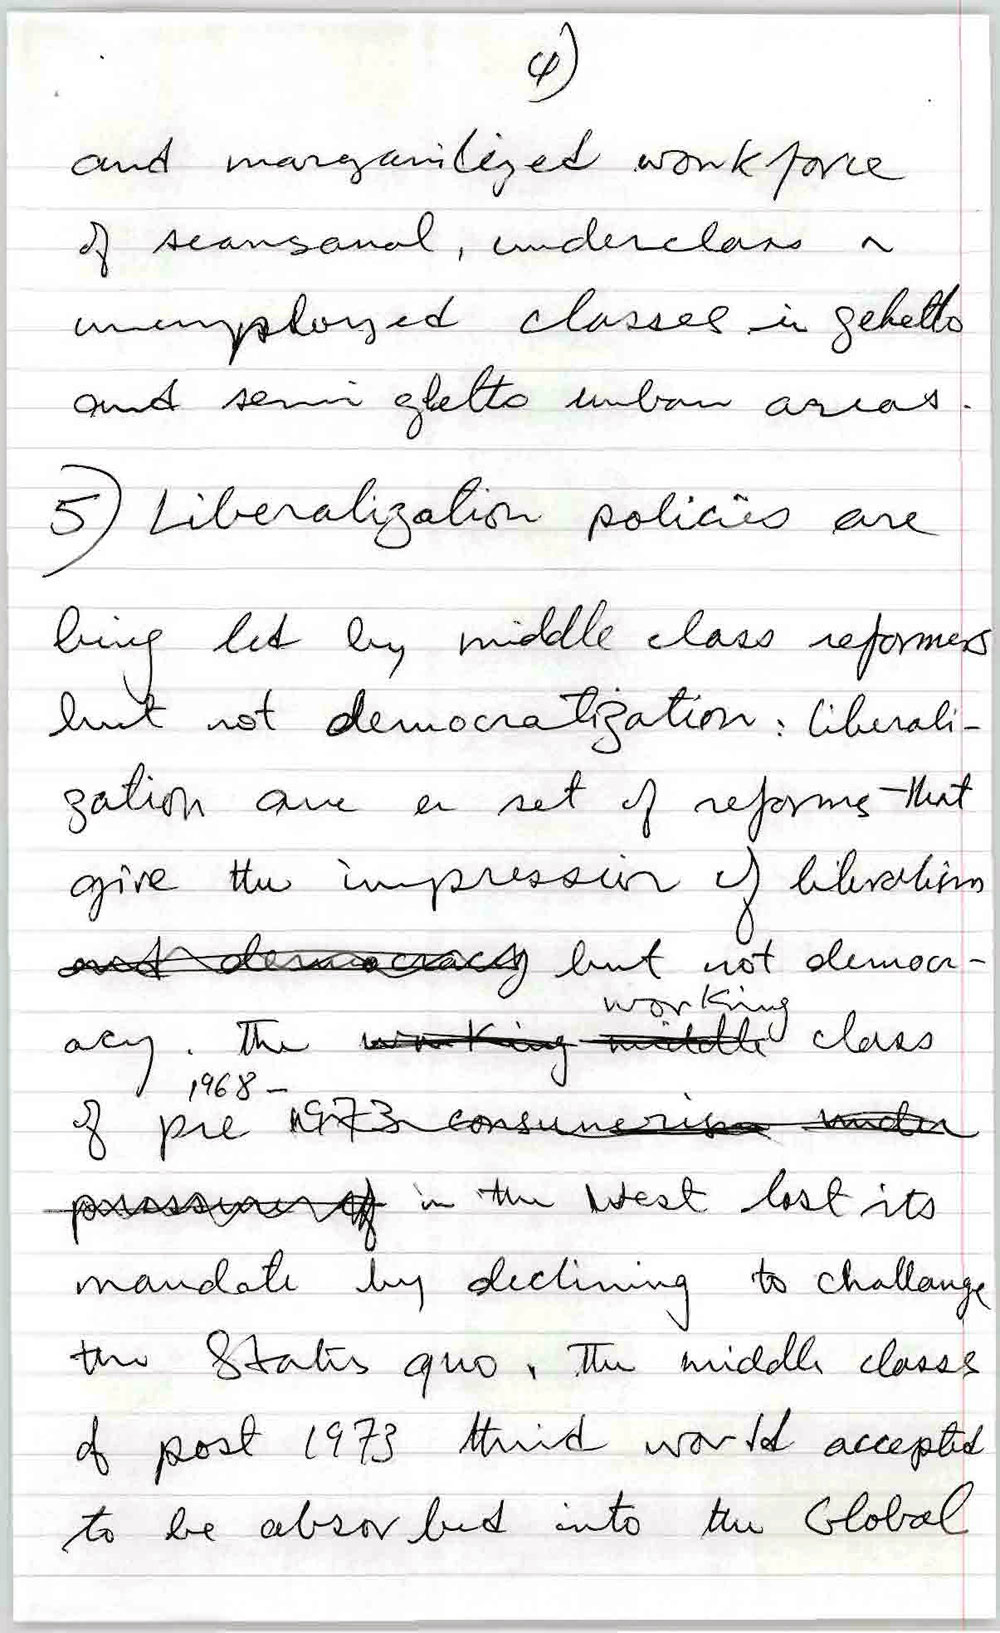 4)
and marganilized workforce
of seansanal, underclass n
unemployed classes in gehetto
and semi ghetto urban areas.
5) Liberalization policies are
being led by middle class reformers
but not democratization: liberali-
zation are a set of reforms that
give the impression of liberalism
and democracy but not democr-
working
acy. The working middle class
1968-
of pre 1973 consumerism under
pressure of in the West lost its
mandate by declining to challange
the Status quo. The middle classs
of post 1973 third world accepted
to be absorbed into the Global